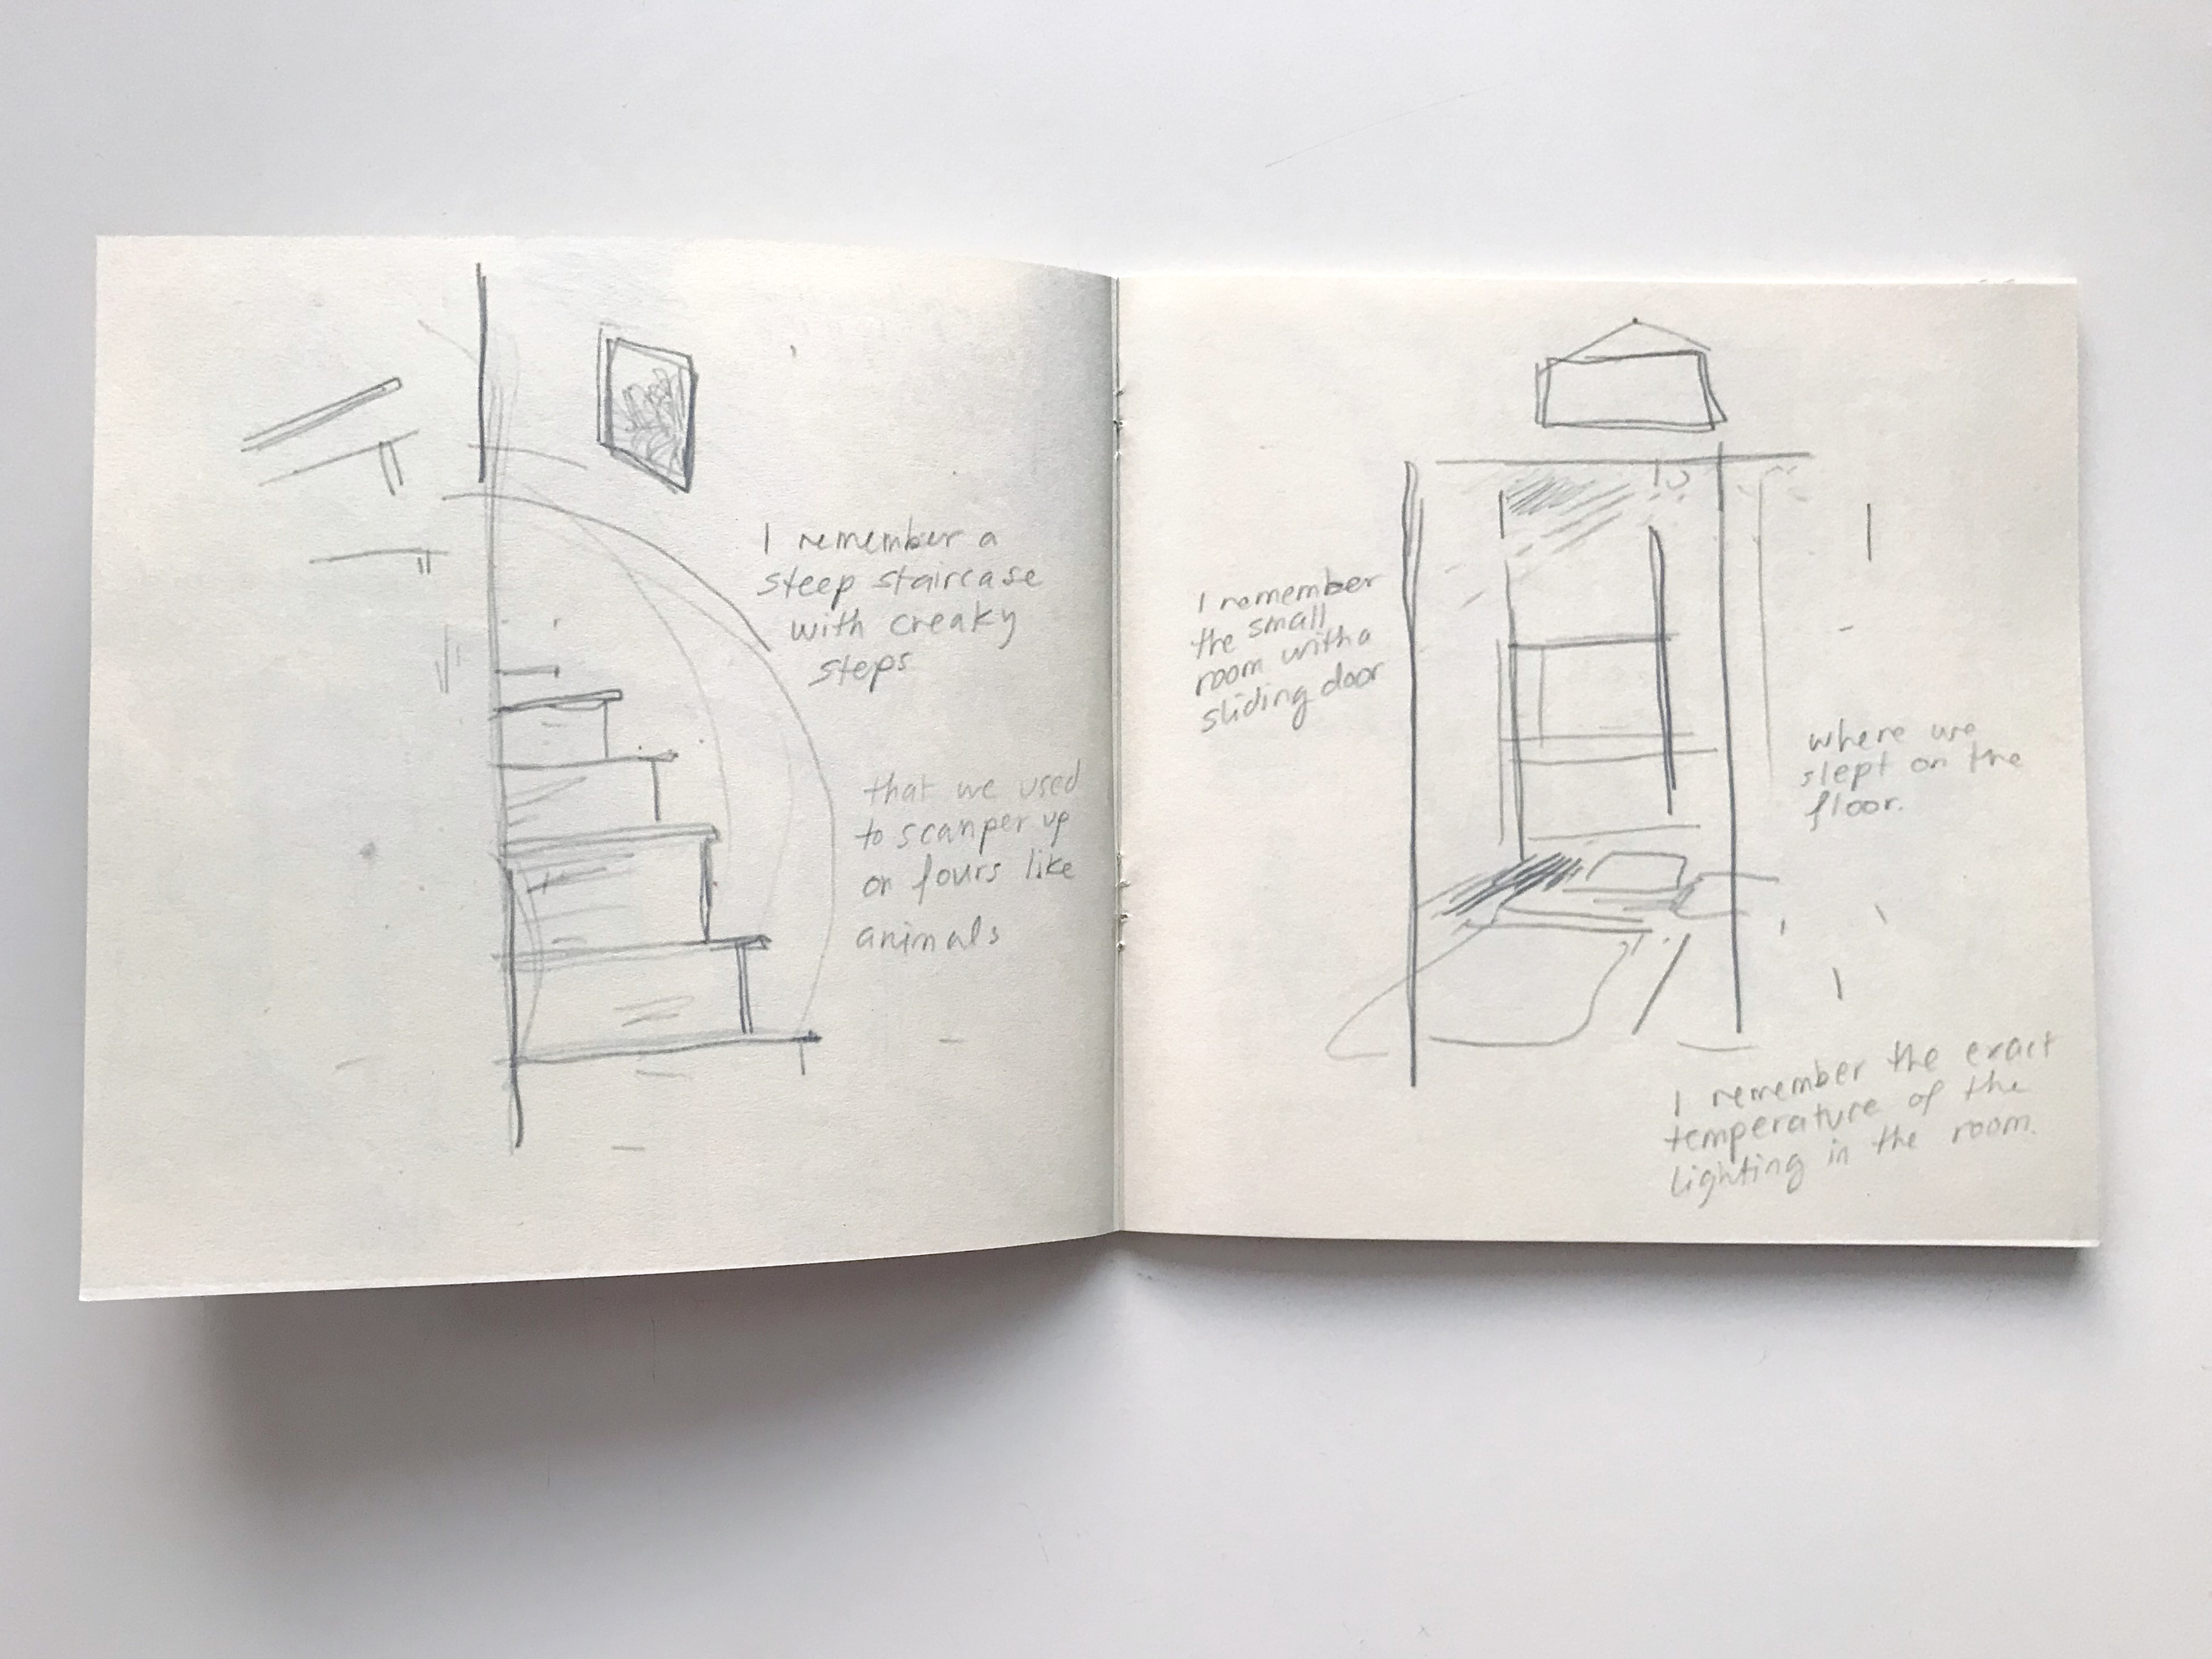 I remember a
steep staircase
with creaky
steps
that we used
to scamper up
on fours like
animals
I remember
the small
room with a
sliding door
where we
slept on the
floor.
I remember the exact
temperature of the
lighting in the room.